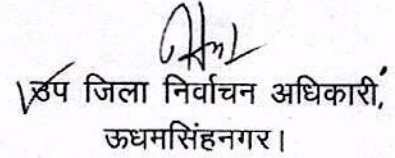 उप जिला निर्वाचन अधिकारी,
ऊधमसिंहनगर।